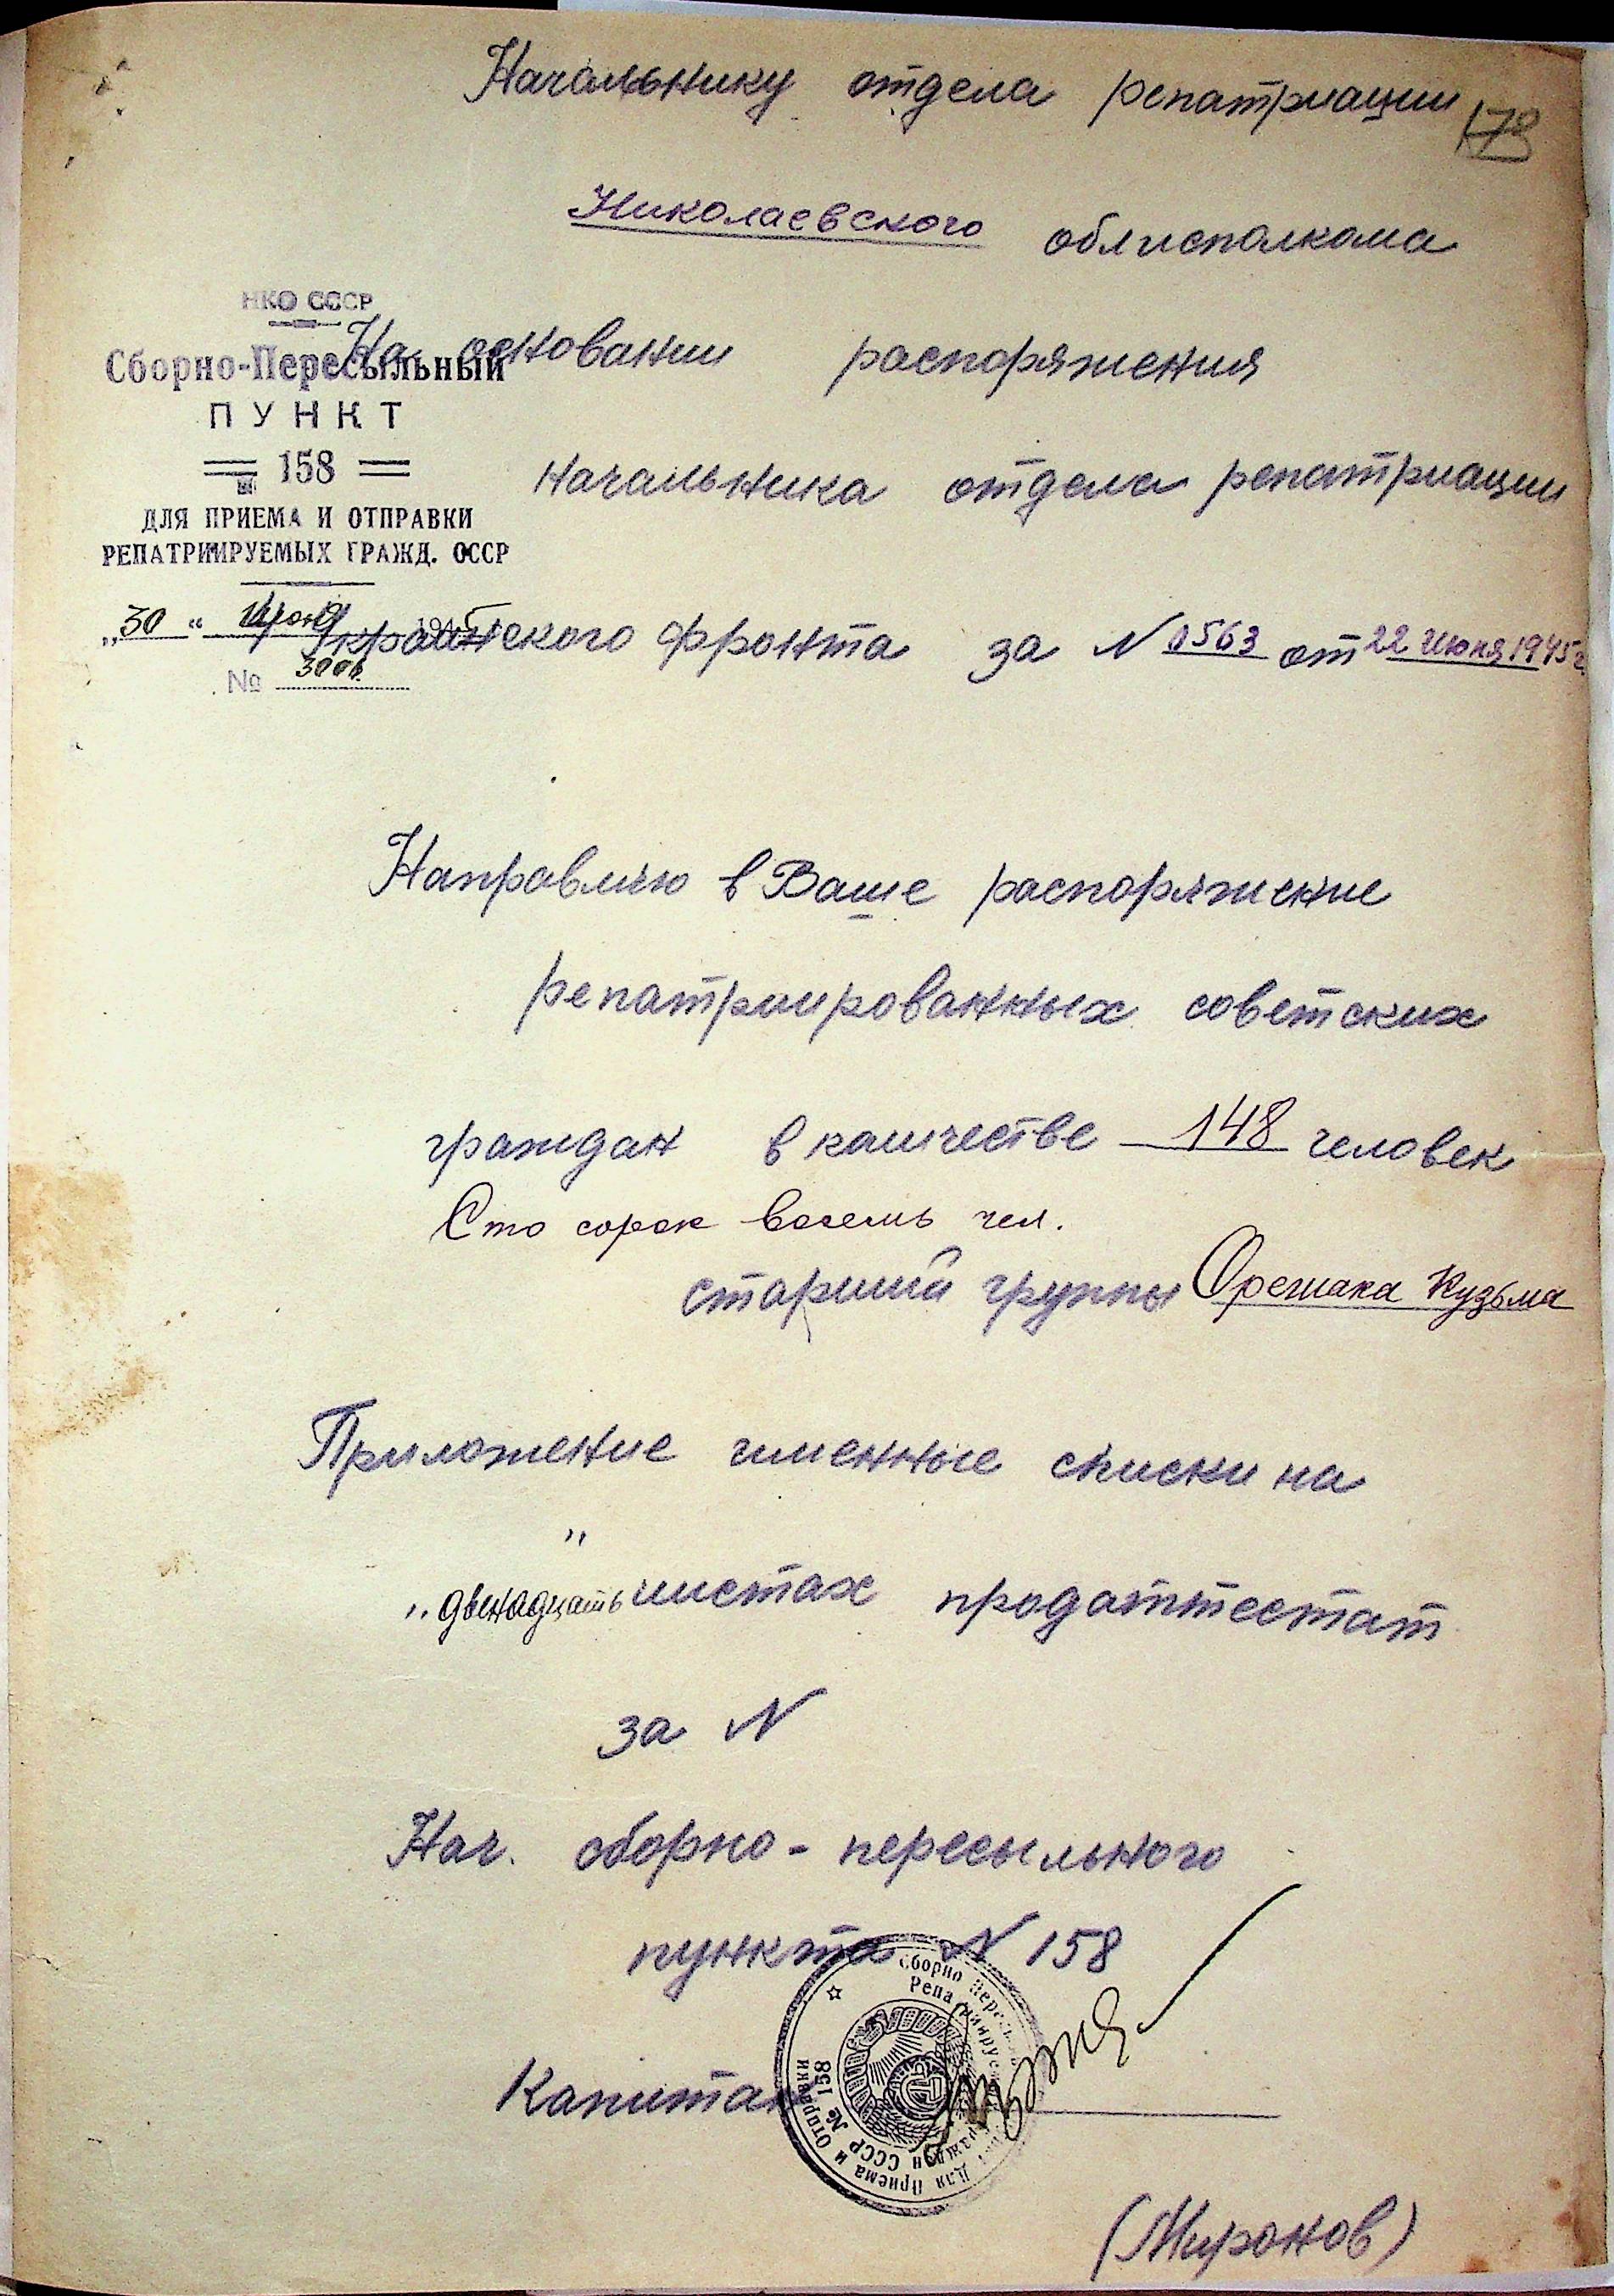 Начальнику отдела репатриации
178
Николаевского облисполкома
НКО СССР
Сборно-Пересыльный
ПУНКТ
158
ДЛЯ ПРИЕМА И ОТПРАВКИ
РЕПАТРИИРУЕМЫХ ГРАЖД. СССР
"30" Июня 1945
№ 3006
На основании распоряжения
начальника отдела репатриации
Украинского фронта за N 0563 от 22 Июня 1945 г.
Направляю в Ваше распоряжение
репатриированных советских
граждан в количестве 148 человек
Сто сорок восемь чел.
старший группы Орешака Кузьма
Приложение именные списки на
"
" двенадцать листах продаттестат
за N
Нач. сборно-пересыльного
пункта N 158
Капитан
Сборно Пересыльный
Для Приема и Отправки
Репатриируемых Граждан СССР № 158
(Миронов)